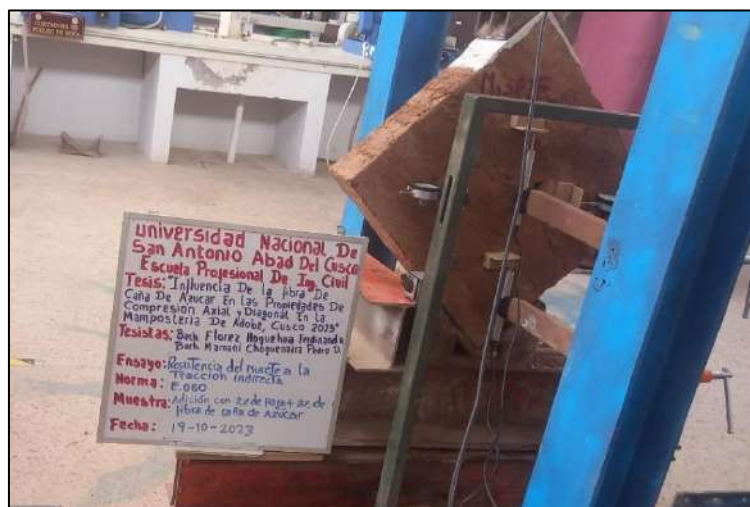 CORTADORA DE
NUCLEO DE ROCA
Universidad Nacional De
San Antonio Abad Del Cusco
Escuela Profesional De Ing. Civil
Tesis: "Influencia De la fibra De
Caña De Azucar En las Propiedades De
Compresion Axial y Diagonal En la
Mamposteria De Adobe, Cusco 2023"
Tesistas: Bach Florez Hoquehua Ferdinand
Bach Mamani Choquenaira Pedro D.
Ensayo: Resistencia del murete a la
Tracción indirecta
Norma: E.080
Muestra: Adición con 2% de Paja + 2% de
fibra de caña de Azúcar
Fecha: 19-10-2023